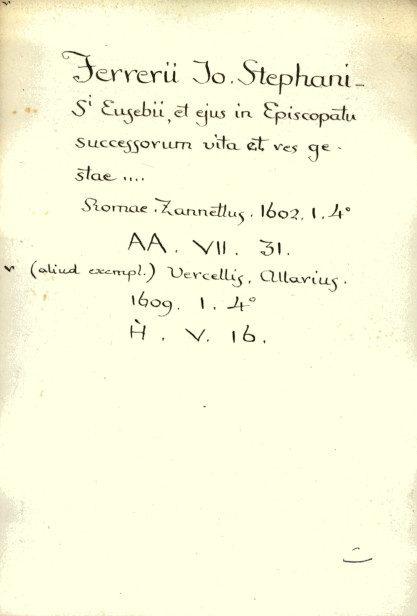 Ferrerii Jo. Stephani-
Sⁱ Eusebii, et ejus in Episcopatu
successorum vita et res ge-
stae ....
Romae. Zannettus. 1602. 1. 4°
AA. VII. 31.
v (aliud exempl.) Vercellis. Allarius.
1609. 1. 4°
H. V. 16.